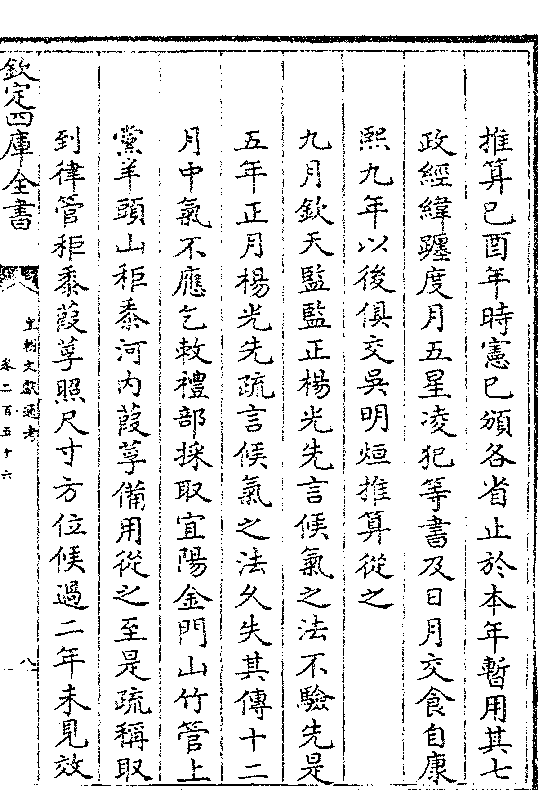 推算己酉年時憲已頒各省止於本年暫用其七
政經緯躔度月五星凌犯等書及日月交食自康
熙九年以後俱交吳明烜推算從之
九月欽天監監正楊光先言候氣之法不驗先是
五年正月楊光先疏言候氣之法久失其傳十二
月中氣不應乞敕禮部採取宜陽金門山竹管上
黨羊頭山秬黍河内葭莩備用從之至是疏稱取
到律管秬黍葭莩照尺寸方位候過二年未見效
欽定四庫全書
皇朝文獻通考
卷二百五十六
八